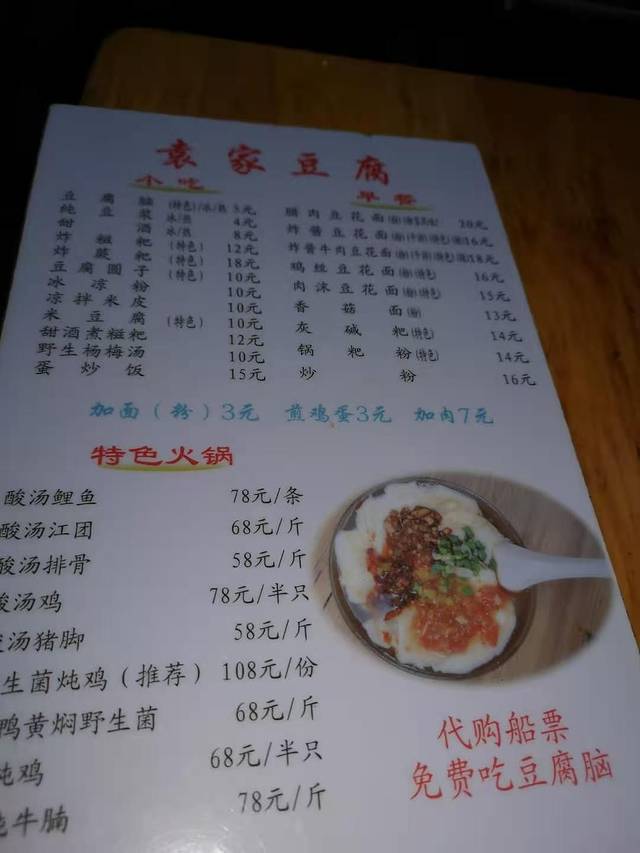 袁家豆腐
小吃
豆腐脑(特色)/冰/热 5元
纯豆浆 冰/热 4元
甜酒 冰/热 8元
炸糍粑(特色) 12元
炸蕨粑(特色) 18元
豆腐圆子(特色) 10元
冰凉粉 10元
凉拌米皮 10元
米豆腐(特色) 10元
甜酒煮糍粑 12元
野生杨梅汤 10元
蛋炒饭 15元
早餐
腊肉豆花面 20元
炸酱豆花面 16元
炸酱牛肉豆花面 18元
鸡丝豆花面(粉)(特色) 16元
肉沫豆花面(粉)(特色) 15元
香菇面(粉) 13元
灰碱粑(特色) 14元
锅粑粉(特色) 14元
炒粉 16元
加面(粉)3元 煎鸡蛋3元 加肉7元
特色火锅
酸汤鲤鱼 78元/条
酸汤江团 68元/斤
酸汤排骨 58元/斤
酸汤鸡 78元/半只
汤猪脚 58元/斤
生菌炖鸡(推荐) 108元/份
鸭黄焖野生菌 68元/斤
炖鸡 68元/半只
炖牛腩 78元/斤
代购船票
免费吃豆腐脑